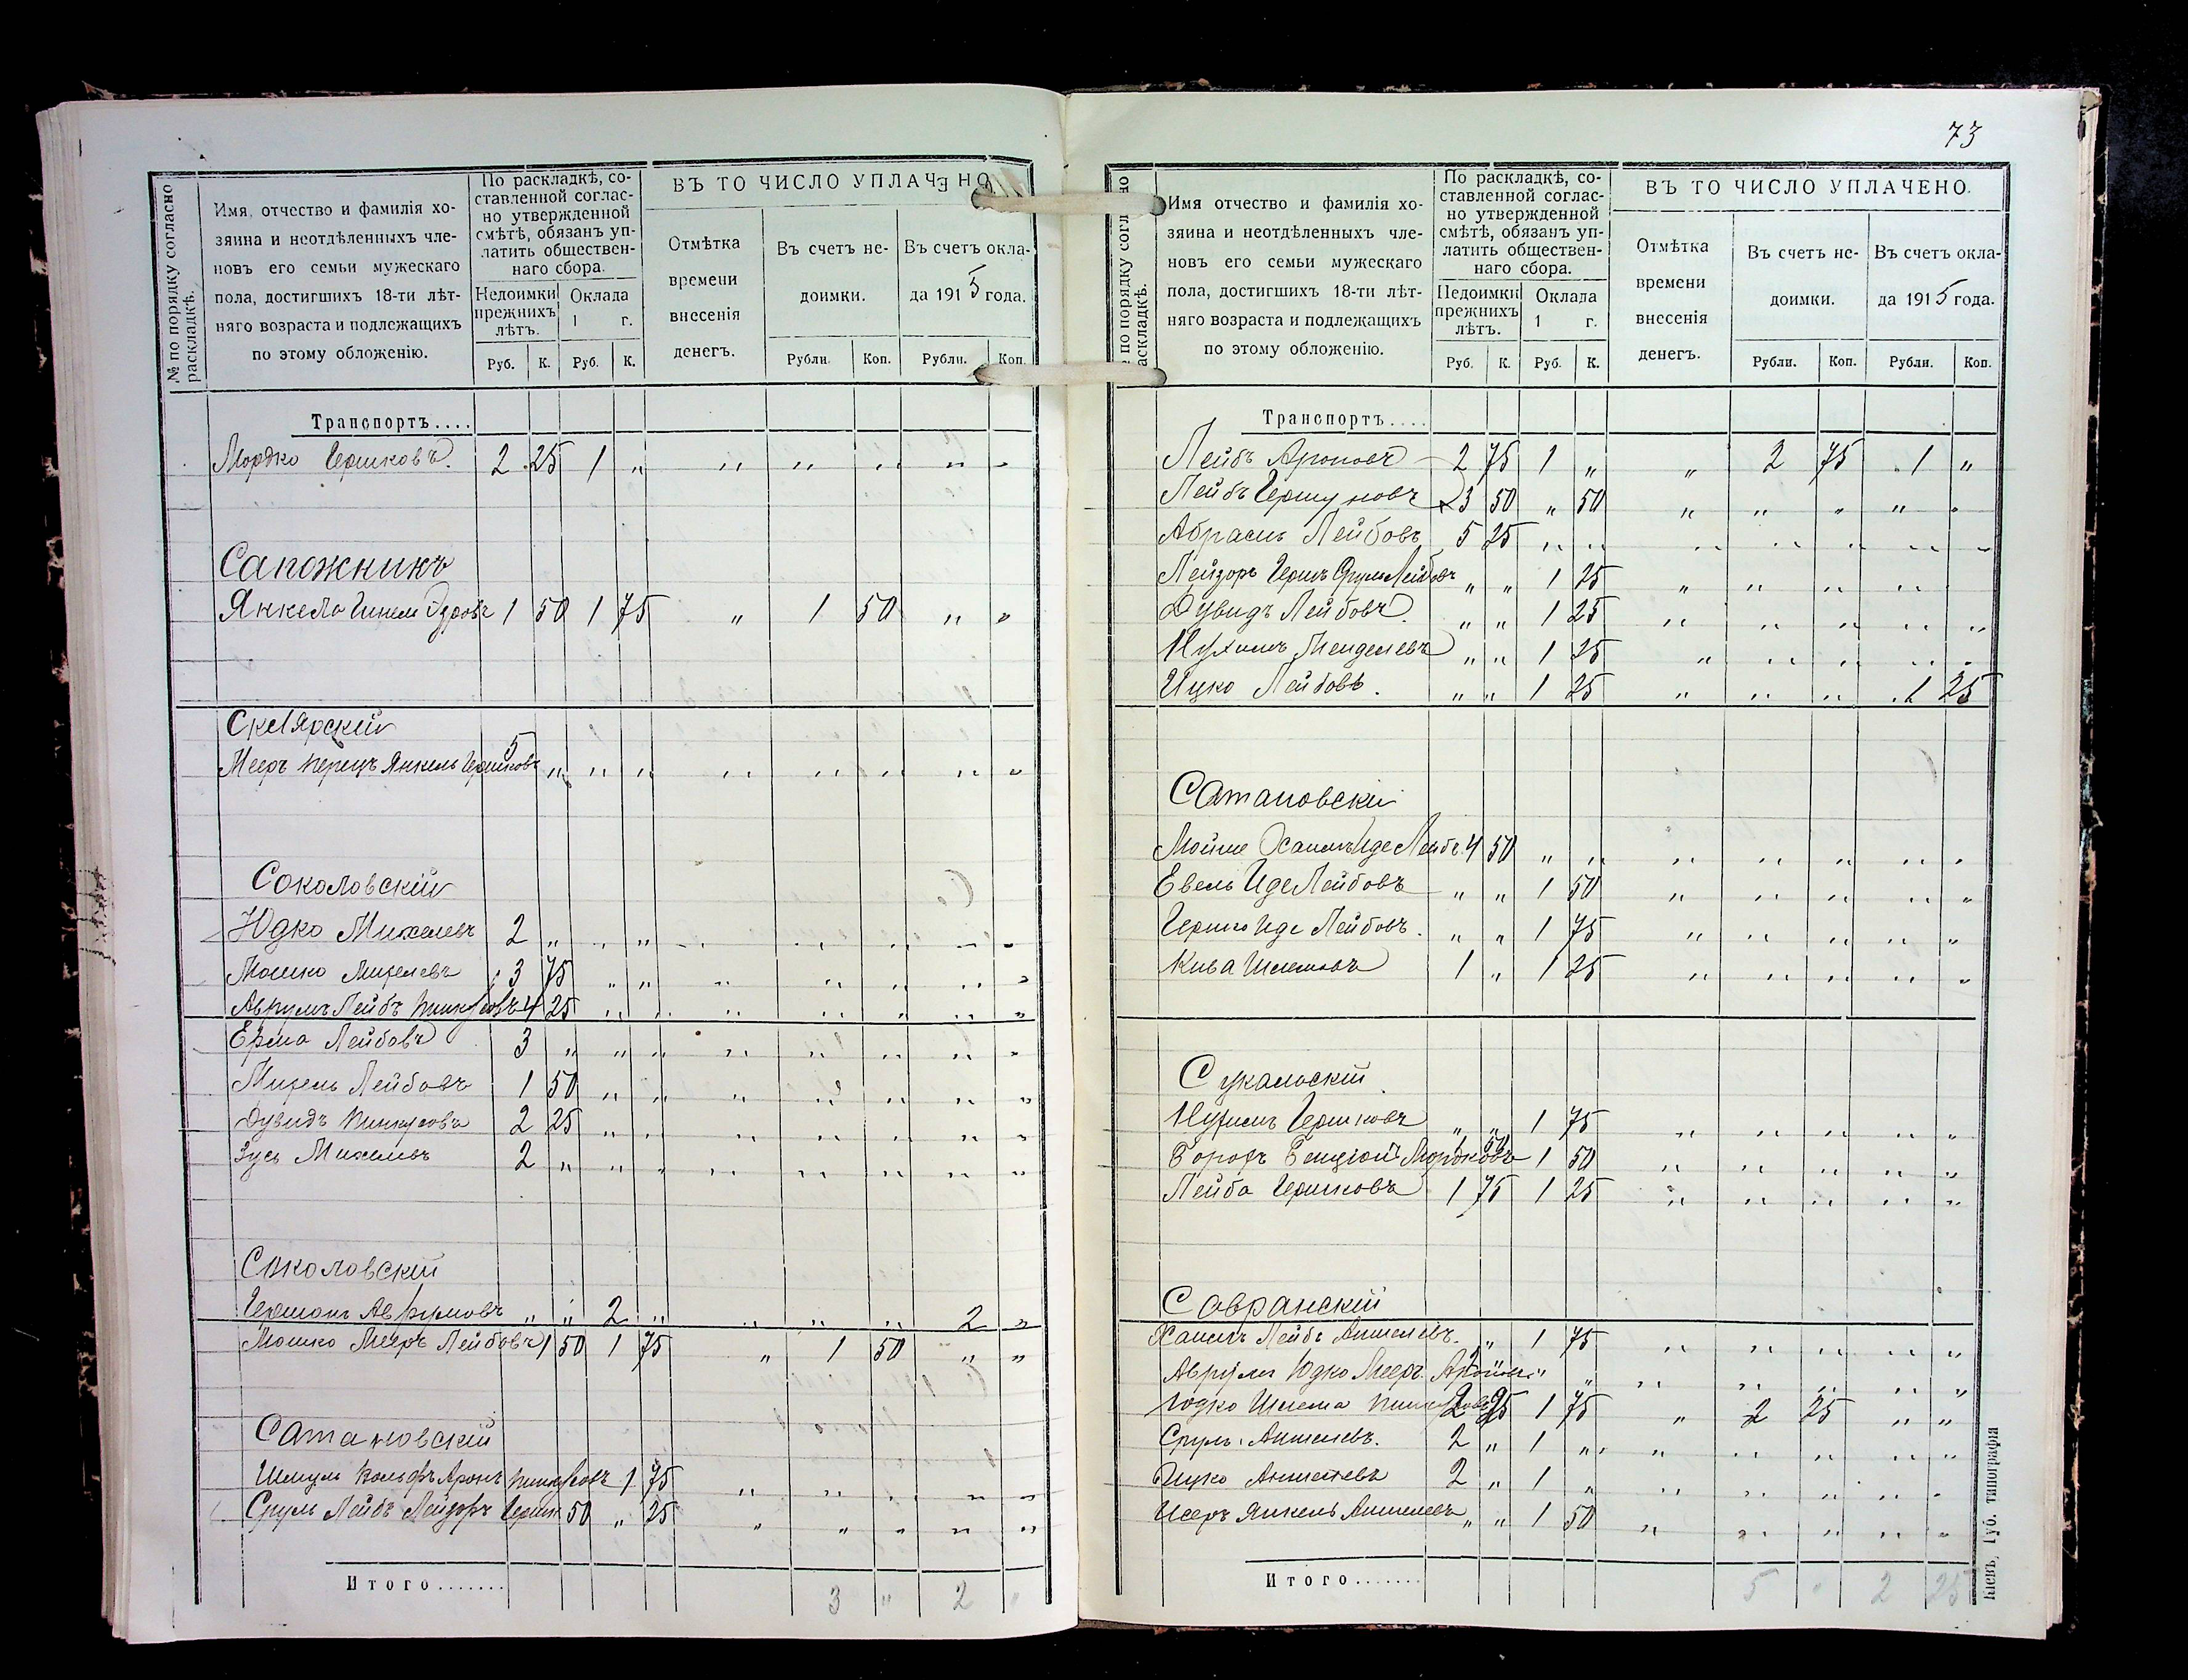 № по порядку согласно раскладкѣ.
Имя, отчество и фамилія хо-
зяина и неотдѣленныхъ чле-
новъ его семьи мужескаго
пола, достигшихъ 18-ти лѣт-
няго возраста и подлежащихъ
по этому обложенію.
По раскладкѣ, со-
ставленной соглас-
но утвержденной
смѣтѣ, обязанъ уп-
латить обществен-
наго сбора.
Недоимки прежнихъ лѣтъ.
Оклада 1 г.
Руб. К. Руб. К.
ВЪ ТО ЧИСЛО УПЛАЧЕНО
Отмѣтка
времени
внесенія
денегъ.
Въ счетъ не-
доимки.
Въ счетъ окла-
да 1915 года.
Рубли. Коп. Рубли. Коп.
Транспортъ....
Мордко Гершковъ. 2 25 1 " " " " " "
Сапожникъ
Янкель 1 50 1 75 " 1 50 " "
Склярскій
Мееръ Перецъ Янкель Гершковъ 5 " " " " " " " "
Соколовскій
Юдко Михелевъ 2 " " " " " " " "
Мошко Михелевъ 3 75 " " " " " " "
Аврумъ Лейбъ Пинкусовъ 4 25 " " " " " " "
Ерма Лейбовъ 3 " " " " " " " "
Михель Лейбовъ 1 50 " " " " " " "
Дувидъ Пинкусовъ 2 25 " " " " " " "
Зусь Михелевъ 2 " " " " " " " "
Соколовскій
Гершонъ Аврумовъ " " 2 " " " " 2 "
Мошко Мееръ Лейбовъ 1 50 1 75 " 1 50 " "
Сатановскій
Шмуль Вольфъ Аронъ Пинкусовъ 1 75 " " " " "
Сруль Лейбъ Лейзоръ Герш 50 " 25 " " " " "
Итого....... 3 " 2 "
73
№ по порядку согласно раскладкѣ.
Имя отчество и фамилія хо-
зяина и неотдѣленныхъ чле-
новъ его семьи мужескаго
пола, достигшихъ 18-ти лѣт-
няго возраста и подлежащихъ
по этому обложенію.
По раскладкѣ, со-
ставленной соглас-
но утвержденной
смѣтѣ, обязанъ уп-
латить обществен-
наго сбора.
Недоимки прежнихъ лѣтъ.
Оклала 1 г.
Руб. К. Руб. К.
ВЪ ТО ЧИСЛО УПЛАЧЕНО.
Отмѣтка
времени
внесенія
денегъ.
Въ счетъ не-
доимки.
Въ счетъ окла-
да 1915 года.
Рубли. Коп. Рубли. Коп.
Транспортъ....
Лейбъ Ароновъ 2 75 1 " " 2 75 1 "
Лейбъ Гершуновъ 3 50 " 50 " " " " "
Абрамъ Лейбовъ 5 25 " " " " " " "
Лейзоръ Гершъ Сруль Лейбовъ " " 1 25 " " " "
Дувидъ Лейбовъ. " " 1 25 " " " " "
Нухимъ Менделевъ " " 1 25 " " " " "
Ицко Лейбовъ. " " 1 25 " " " 1 25
Сатановскій
Мойше Хаимъ Иде Лейбъ. 4 50 " " " " " " "
Евель Иде Лейбовъ " " 1 50 " " " " "
Гершко Иде Лейбовъ. " " 1 75 " " " " "
Кива Шлемовъ 1 " 1 25 " " " " "
Нухимъ Гершковъ " " 1 75 " " " " "
Борохъ Бенціонъ Мордковъ 1 50 " " " " "
Лейба Гершковъ 1 75 1 25 " " " " "
Савранскій
Хаимъ Лейбъ Аншелевъ. " 1 75 " " " " "
Аврумъ Юдко Мееръ " " " " " "
Юдко Шлема Пинкусовъ 2 25 1 75 " 2 25 " "
Сруль Аншелевъ. 2 " 1 " " " " " "
Ицко Аншелевъ 2 " 1 " " " " " "
Исеръ Янкель Аншелевъ " " 1 50 " " " " "
Итого....... 5 " 2 25
Кіевъ, Губ. типографія